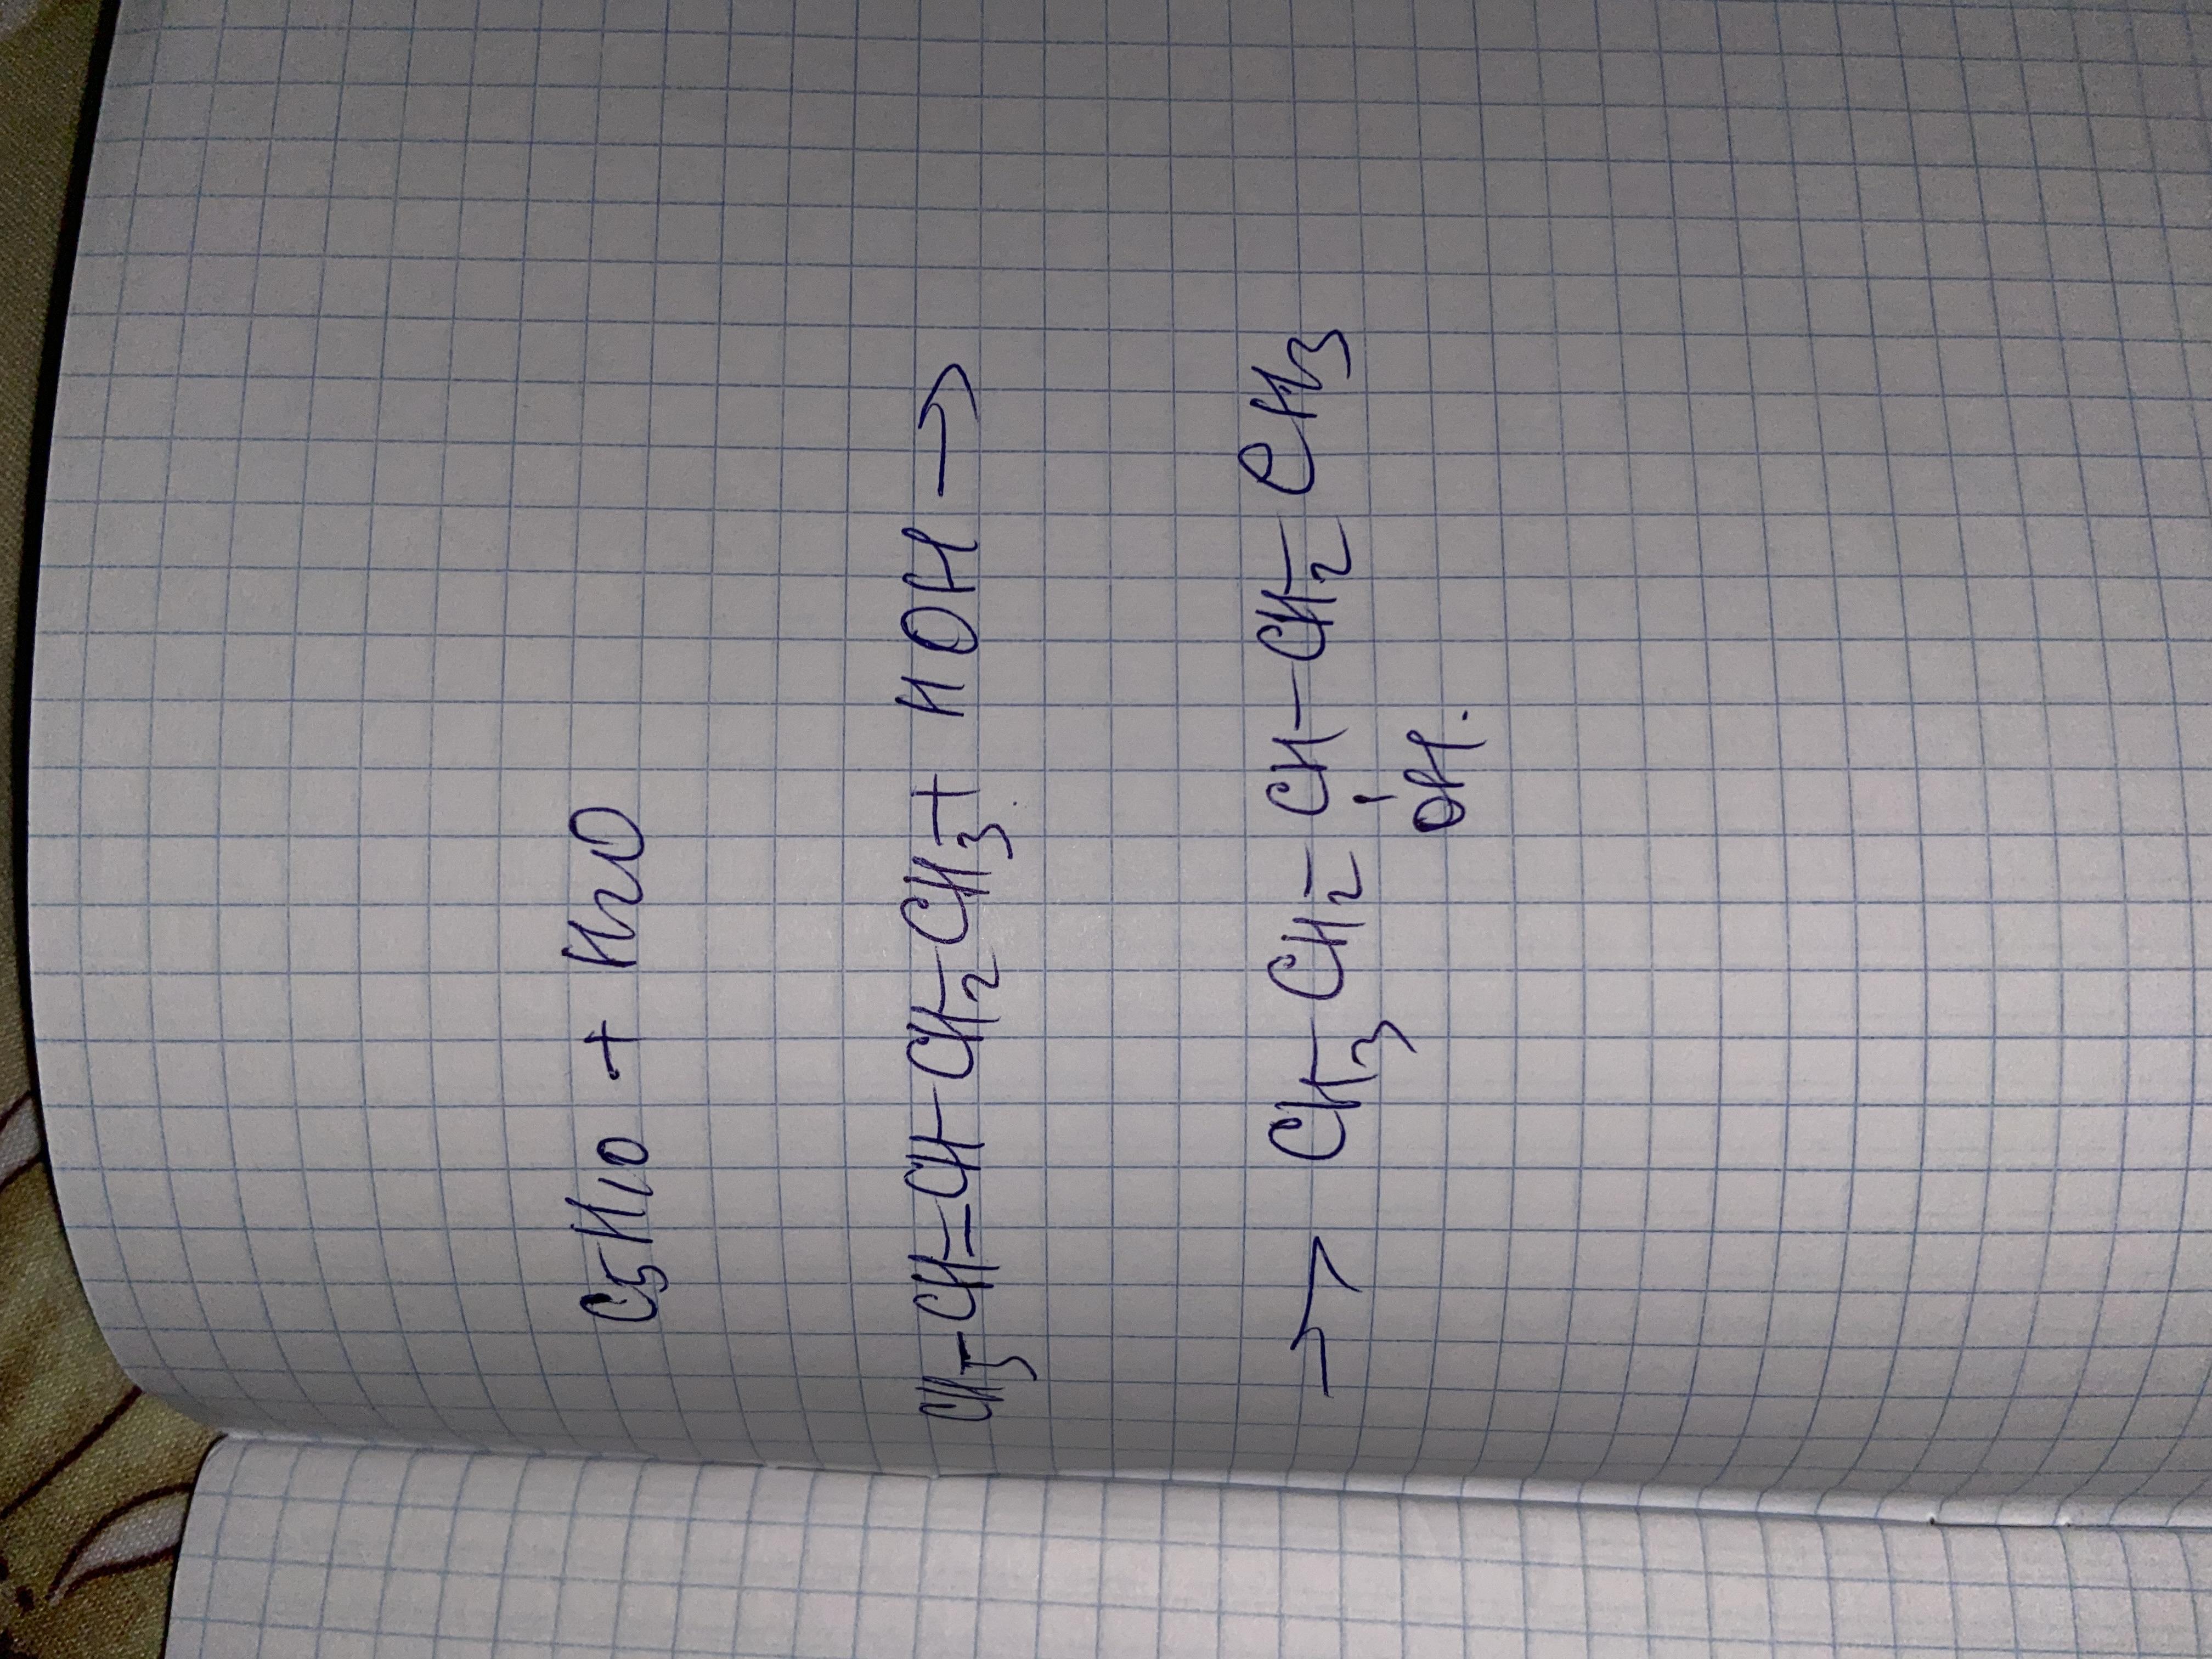 C5H10 + H2O
CH3-CH=CH-CH2-CH3 + HOH →
→ CH3-CH2-CH-CH2-CH3
OH.